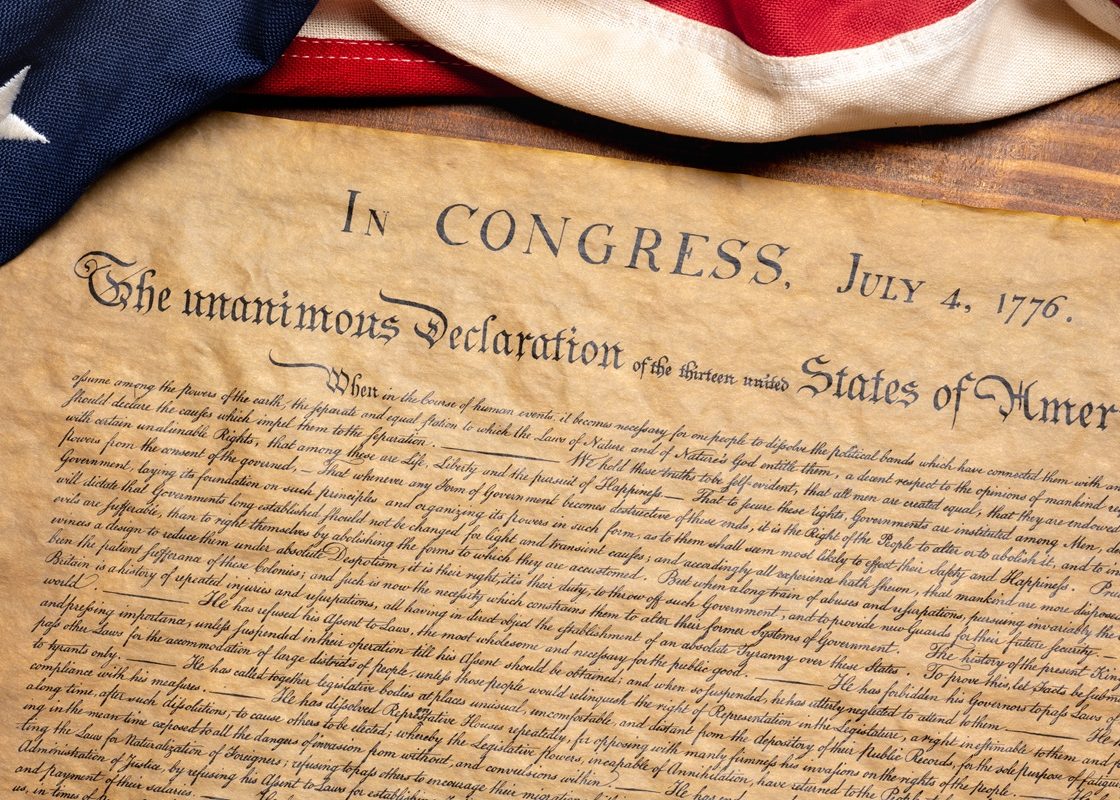 In CONGRESS, July 4, 1776.
The unanimous Declaration of the thirteen united States of Amer
When in the Course of human events, it becomes necessary for one people to dissolve the political bands which have connected them with
assume among the powers of the earth, the separate and equal station to which the Laws of Nature and of Nature's God entitle them, a decent respect to the opinions of mankind
should declare the causes which impel them to the separation. —— We hold these truths to be self-evident, that all men are created equal, that they are endowed
with certain unalienable Rights, that among these are Life, Liberty and the pursuit of Happiness — That to secure these rights, Governments are instituted among Men,
powers from the consent of the governed, — That whenever any Form of Government becomes destructive of these ends, it is the Right of the People to alter or to abolish it, and to
Government, laying its foundation on such principles and organizing its powers in such form, as to them shall seem most likely to effect their Safety and Happiness.
will dictate that Governments long established should not be changed for light and transient causes; and accordingly all experience hath shewn, that mankind are more
evils are sufferable, than to right themselves by abolishing the forms to which they are accustomed. But when a long train of abuses and usurpations, pursuing invariably the
evinces a design to reduce them under absolute Despotism, it is their right, it is their duty, to throw off such Government, and to provide new Guards for their future security.
been the patient sufferance of these Colonies; and such is now the necessity which constrains them to alter their former Systems of Government. The history of the present
Britain is a history of repeated injuries and usurpations, all having in direct object the establishment of an absolute Tyranny over these States. To prove this, let Facts be
world. —— He has refused his Assent to Laws, the most wholesome and necessary for the public good. —— He has forbidden his Governors to pass Laws
and pressing importance, unless suspended in their operation till his Assent should be obtained; and when so suspended, he has utterly neglected to attend to them. —— He
pass other Laws for the accommodation of large districts of people, unless those people would relinquish the right of Representation in the Legislature, a right inestimable to them and
to tyrants only. —— He has called together legislative bodies at places unusual, uncomfortable, and distant from the depository of their public Records, for the sole purpose of
compliance with his measures. —— He has dissolved Representative Houses repeatedly, for opposing with manly firmness his invasions on the rights of the people.
along time, after such dissolutions, to cause others to be elected; whereby the Legislative Powers, incapable of Annihilation, have returned to the People
ing in the mean time exposed to all the dangers of invasion from without, and convulsions within. —— He has
ting the Law for Naturalization of Foreigners; refusing to pass others to encourage their migration
Administration of Justice, by refusing his Assent to Laws for
and payment of their salaries.
us, in times of